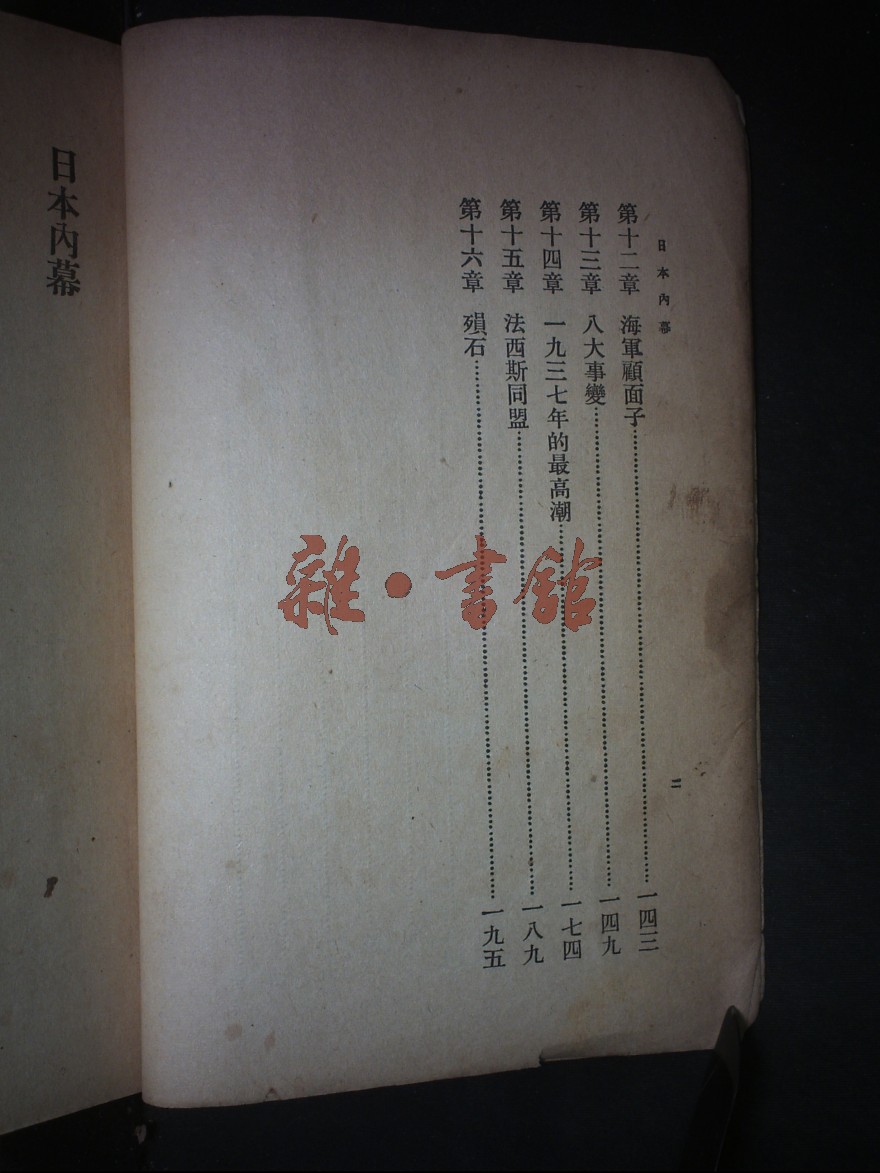 日本內幕
第十二章 海軍顧面子……一四三
第十三章 八大事變……一四九
第十四章 一九三七年的最高潮……一七四
第十五章 法西斯同盟……一八九
第十六章 殞石……一九五
二
日本內幕
雜·書館